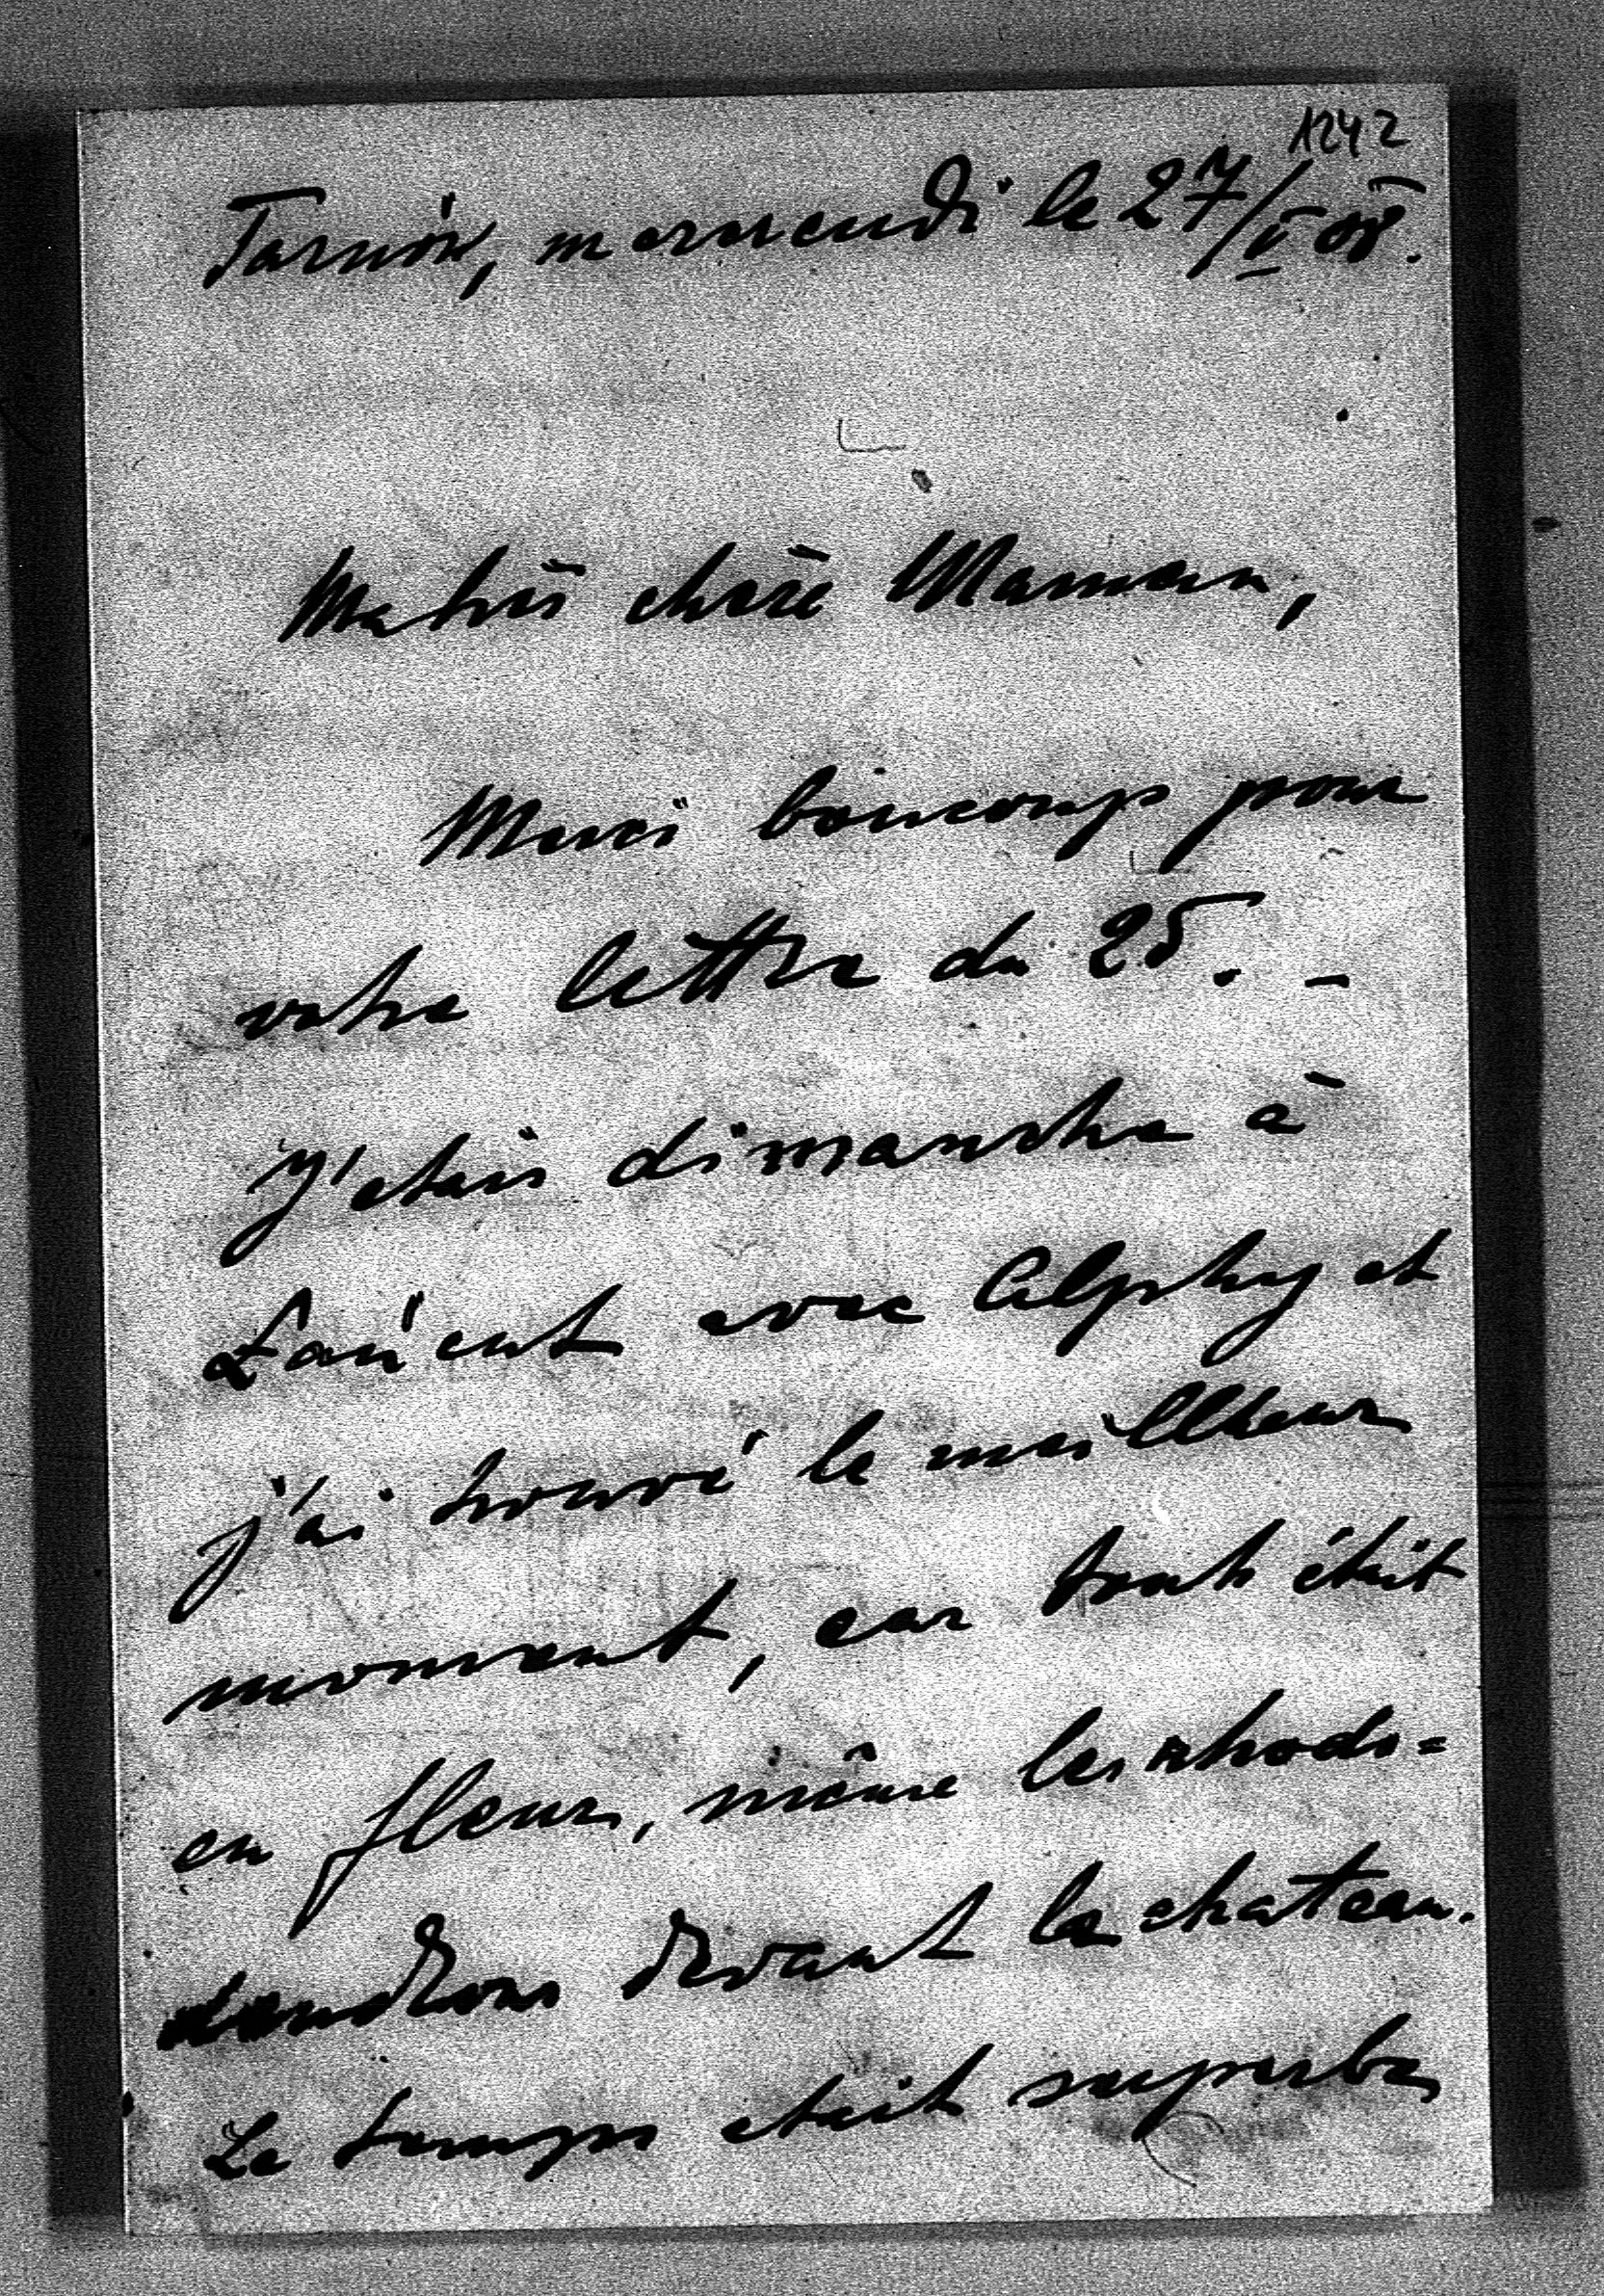 1242
Tarnów, mercredi le 27/V 08.
Ma très chère Maman,
Merci boucoup pour
votre lettre du 25. –
J'etais dimanche à
Łańcut avec Alphy et
j'ai trouvé le meilleur
moment, car tout était
en fleur, même les rhodo=
dendrons devant le chateau.
Le temps etait superbe,